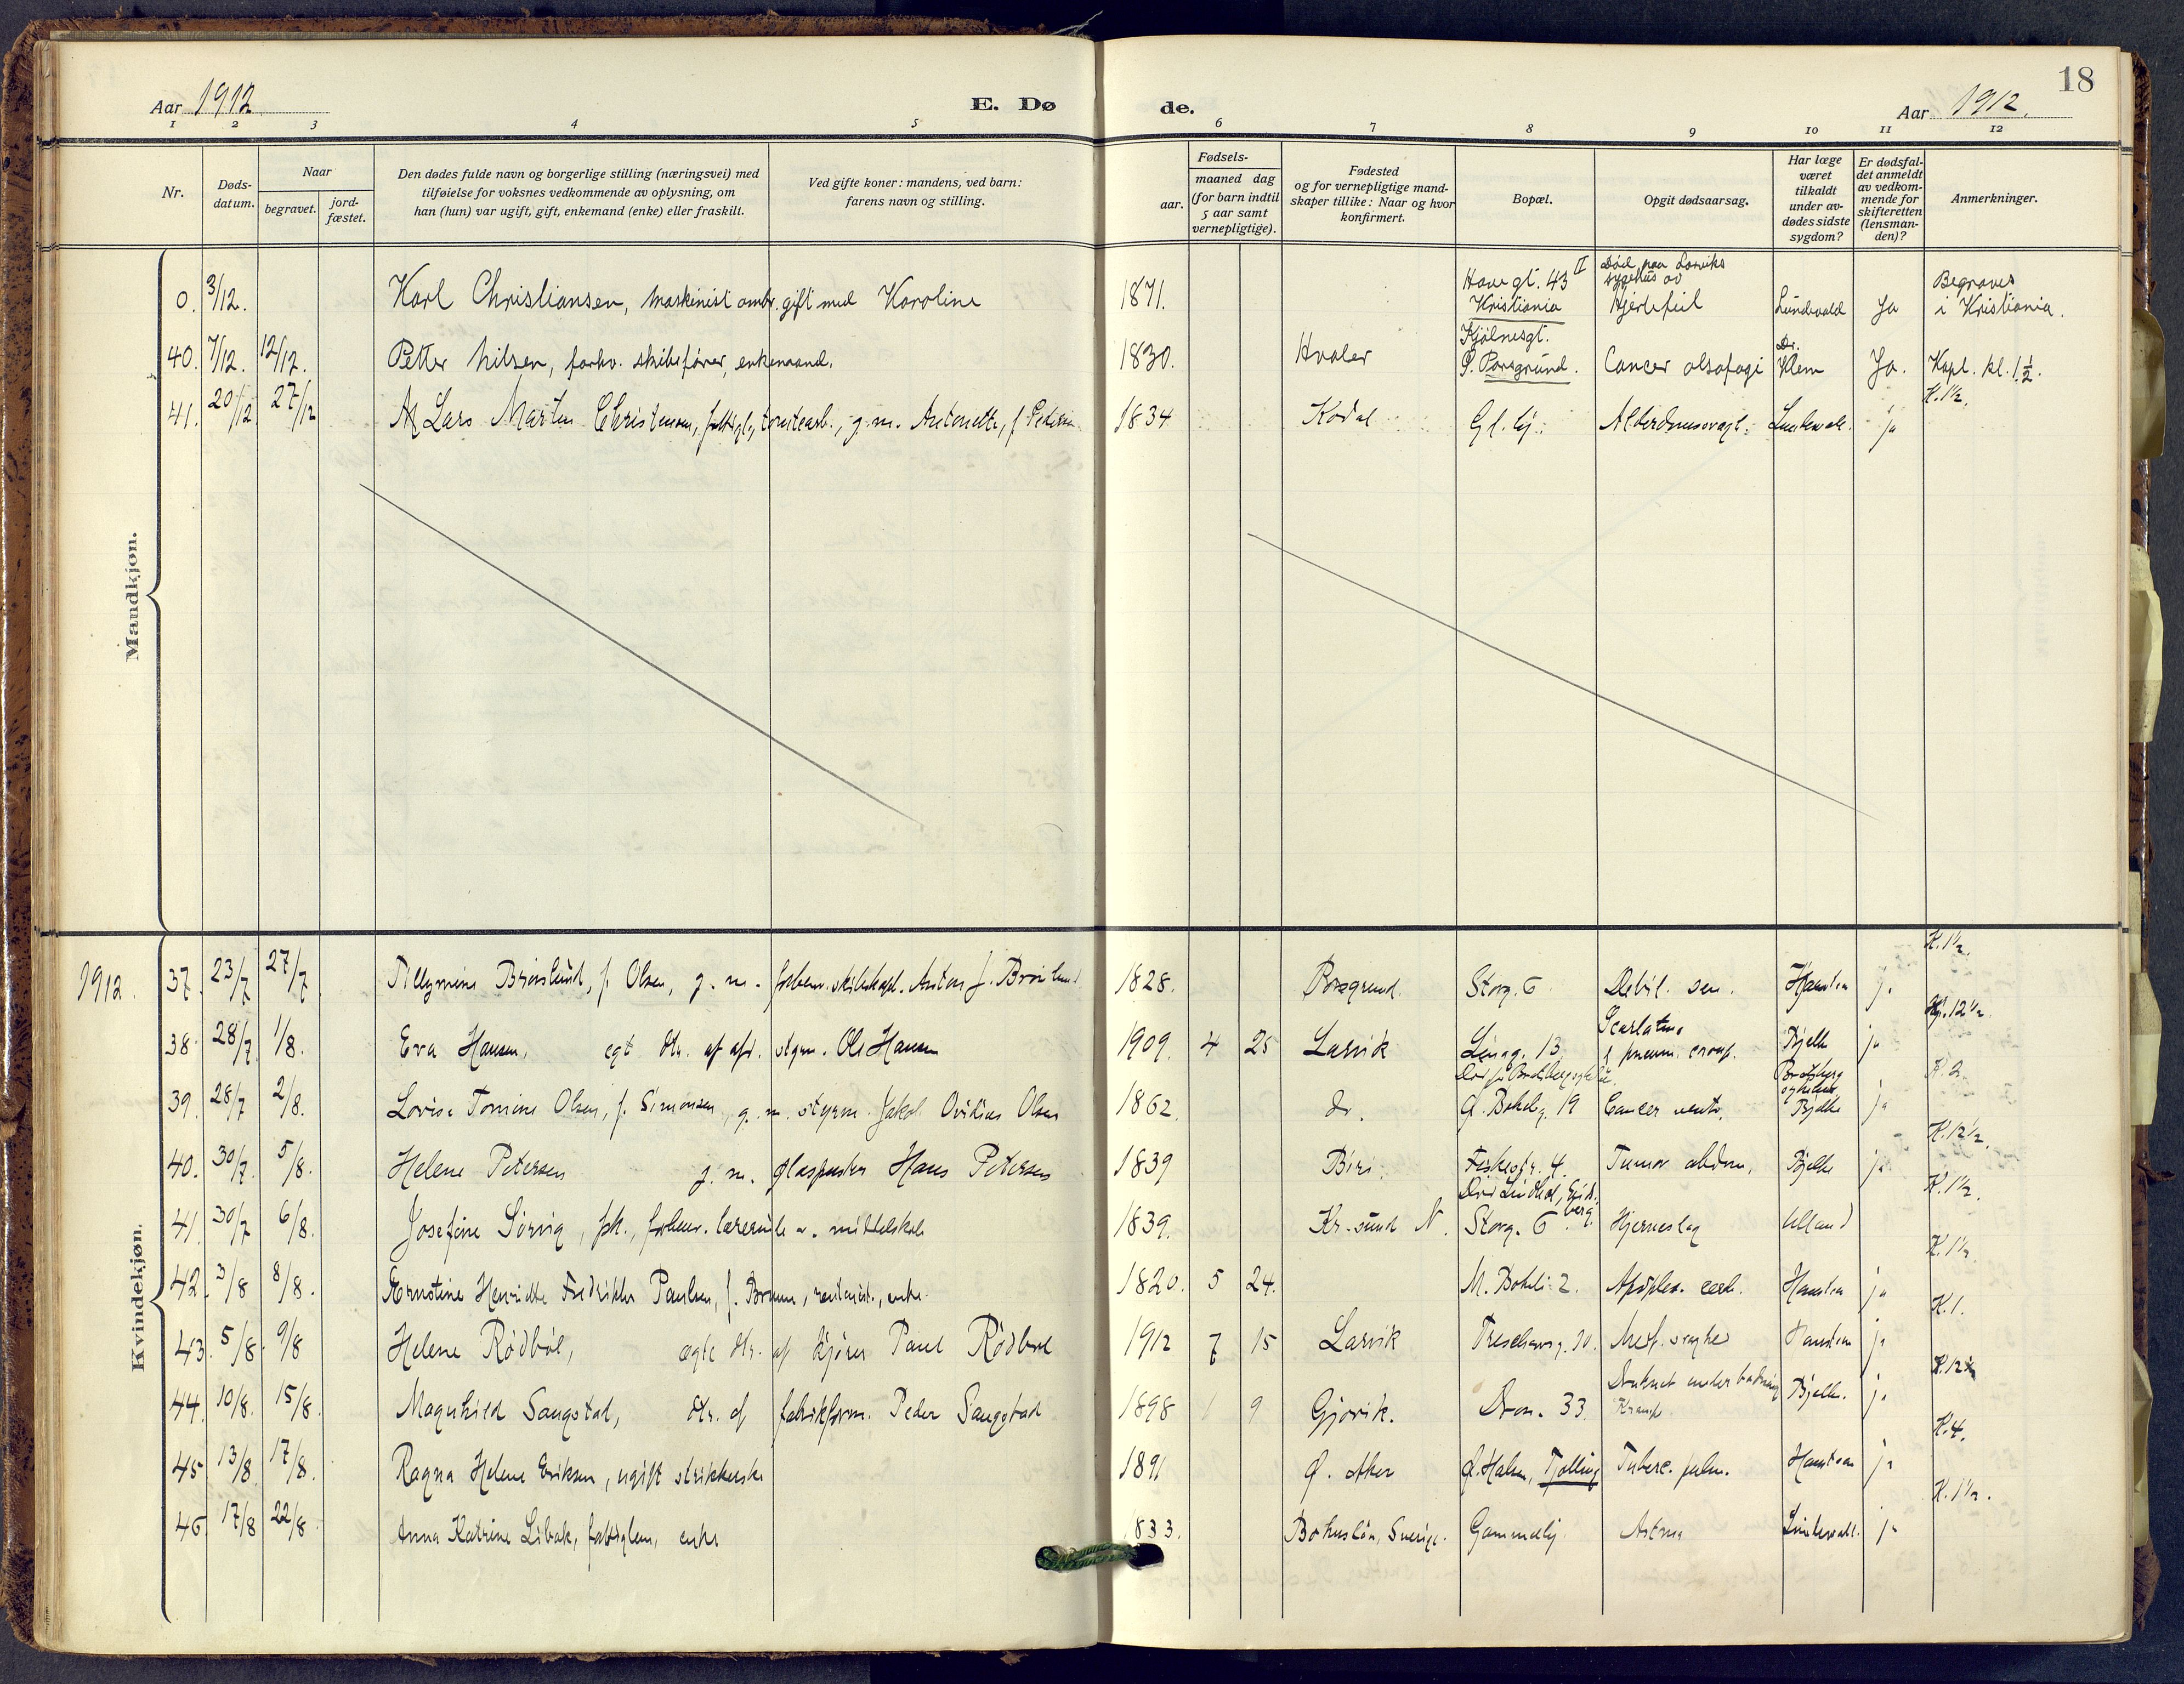 18
Aar 1912
E. Dø de.
Aar 1912.
1 2 3 4 5 6 7 8 9 10 11 12
Nr.
Døds-
datum.
Naar
begravet.
jord-
fæstet.
Den dødes fulde navn og borgerlige stilling (næringsvei) med
tilføielse for voksnes vedkommende av oplysning, om
han (hun) var ugift, gift, enkemand (enke) eller fraskilt.
Ved gifte koner: mandens, ved barn:
farens navn og stilling.
Fødsels-
aar.
maaned dag
(for barn indtil
5 aar samt
vernepligtige).
Fødested
og for vernepligtige mand-
skaper tillike: Naar og hvor
konfirmert.
Bopæl.
Opgit dødsaarsag.
Har læge
været
tilkaldt
under av-
dødes sidste
sygdom?
Er dødsfal-
det anmeldt
av vedkom-
mende for
skifteretten
(lensman-
den)?
Anmerkninger.
Mandkjøn.
0. 3/12. Karl Christiansen, maskinist ombr. gift med Karoline 1871. Havegt. 43 II Kristiania Død paa Larviks sygehus av Hjertefeil Lundevald Ja Begraves i Kristiania.
40. 7/12. 12/12. Petter Nilsen, forhv. skibsfører, enkemand. 1830. Hvaler Kjølnesgt. P. Porsgrund. Cancer olsofagi Dr. Klem Ja. Kapl. kl. 1 1/2.
41. 20/12 27/12 Lars Martin Christensen, fattigl., tomtearb., g. m. Antonette, f. Pedersen 1834 Kodal Gl. hj. Alderdomssvagh. ja K. 1 1/2.
Kvindekjøn.
1912. 37. 23/7 27/7 Brønlund, f. Olsen, g. m. forhenv. skibskapt. Anton J. Brønlund 1828. Porsgrund. Storg. 6 Debil. sen. ja K. 1 1/2.
38. 28/7 1/8. Eva Hansen, egt. dtr. af afd. styrm. Ole Hansen 1909. 4 25 Larvik 13 Scarlatina pneum. croup. Bjelke ja 12 1/2.
39. 28/7 2/8. Lovise Tomine Olsen, f. Simonsen, g. m. styrm. Jakob Ovidius Olsen 1862. do. Ø. Bøkelig. 19 Cancer ventr. Bratsberg sykehus Bjelke ja K. 2
40. 30/7. 5/8. Helene Petersen g. m. glaspuster Hans Petersen 1839 Biri. Fiskestr. 4. Tumor abdom. Bjelke ja K. 12 1/2.
41. 30/7 6/8. Josefine Sørvig, frk., forhenv. lærerinde v. middelskole 1839. Kr.sund N. Storg. 6 Hjerneslag Ulland K. 1 1/2.
42. 3/8 8/8. Ernstine Henriette Fredrikke Paulsen, f. Bruun, rentenist., enke 1820. 5 24. M. Bøkeli 2. Apoplex. cereb. ja K. 1 1/2
43. 5/8. 9/8 Helene Rødbøl, ægte dtr. af kjører Paul Rødbøl 1912 7 15 Larvik Treschowsg. 10. Med. svaghed ja K. 1.
44. 10/8. 15/8. Magnhild Saugstad, dtr. af fabrikform. Peder Saugstad 1898 1 9 Gjøvik. Dron. 33. Druknet under badning Krampe Bjelke. ja
45 13/8. 17/8. Ragna Helene Eriksen, ugift strikkerske 1891 Ø. Aker Ø. Halsen, Tjølling Tuberc. pulm. ja K. 4.
46. 17/8 22/8. Anna Katrine Libak, fattiglem, enke 1833. Bohuslän, Sverige. Gammelhj. Astma ja K. 1 1/2.